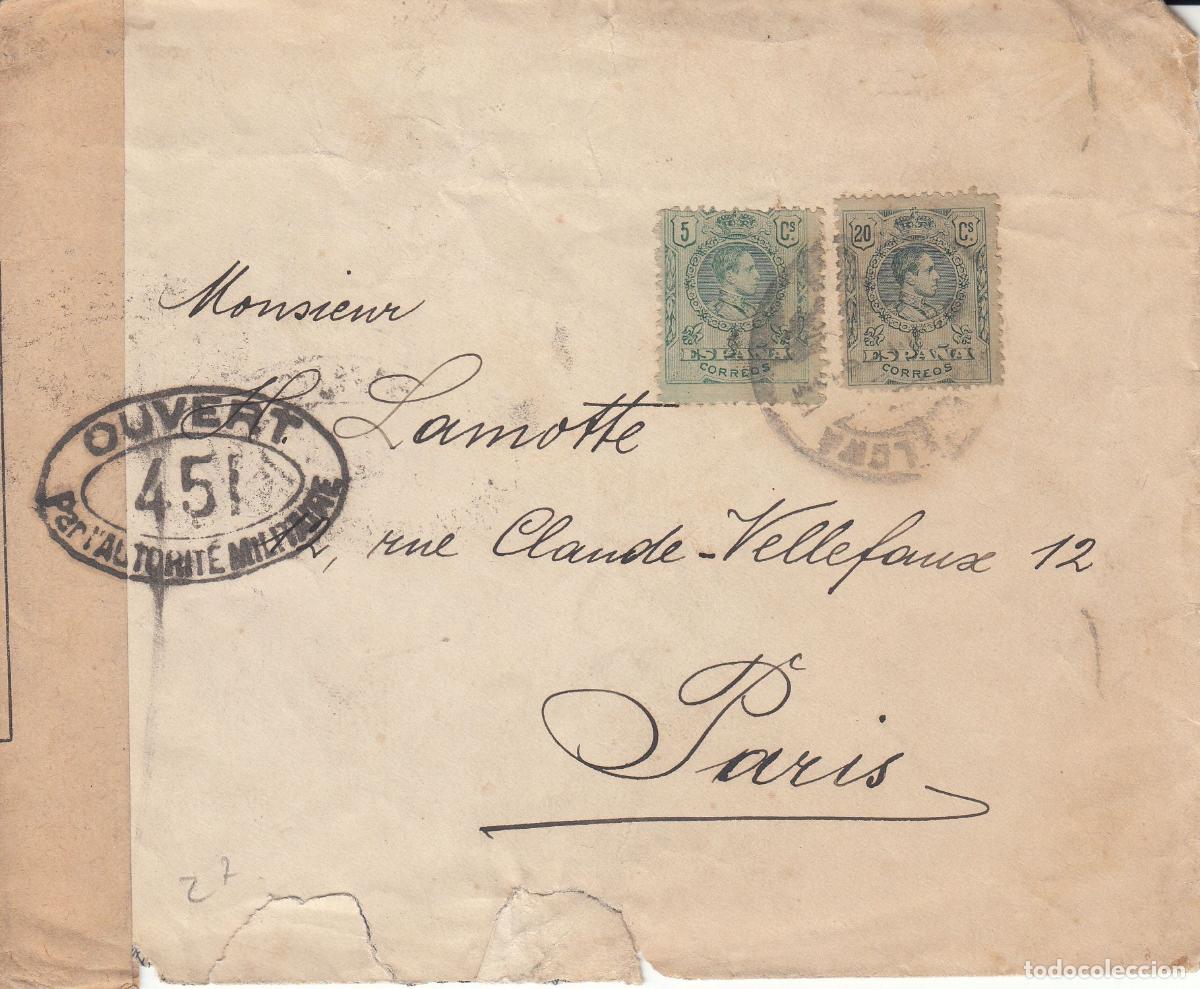 5 Cs.
ESPAÑA
CORREOS
20 Cs.
ESPAÑA
CORREOS
Monsieur
H. Lamotte
12, rue Claude-Vellefaux 12
Paris
OUVERT
451
Par l'AUTORITÉ MILITAIRE
27
todocoleccion